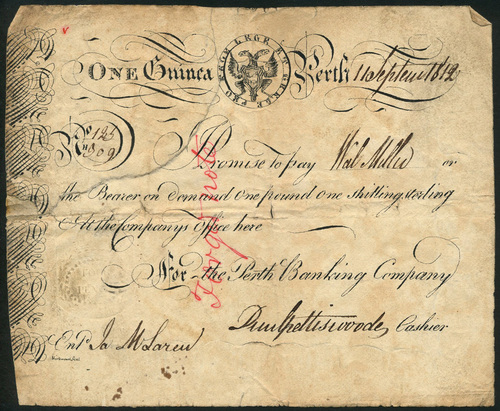 PRO LEGE REGE ET GREGE
ONE Guinea Perth 11 Septemr 1812
No 125/809
Promise to pay Wal Miller or
the Bearer on demand one pound one shilling sterling
At the Companys Office here
For the Perth Banking Company
Cashier
Entd Ja McLaren
Forged note
v